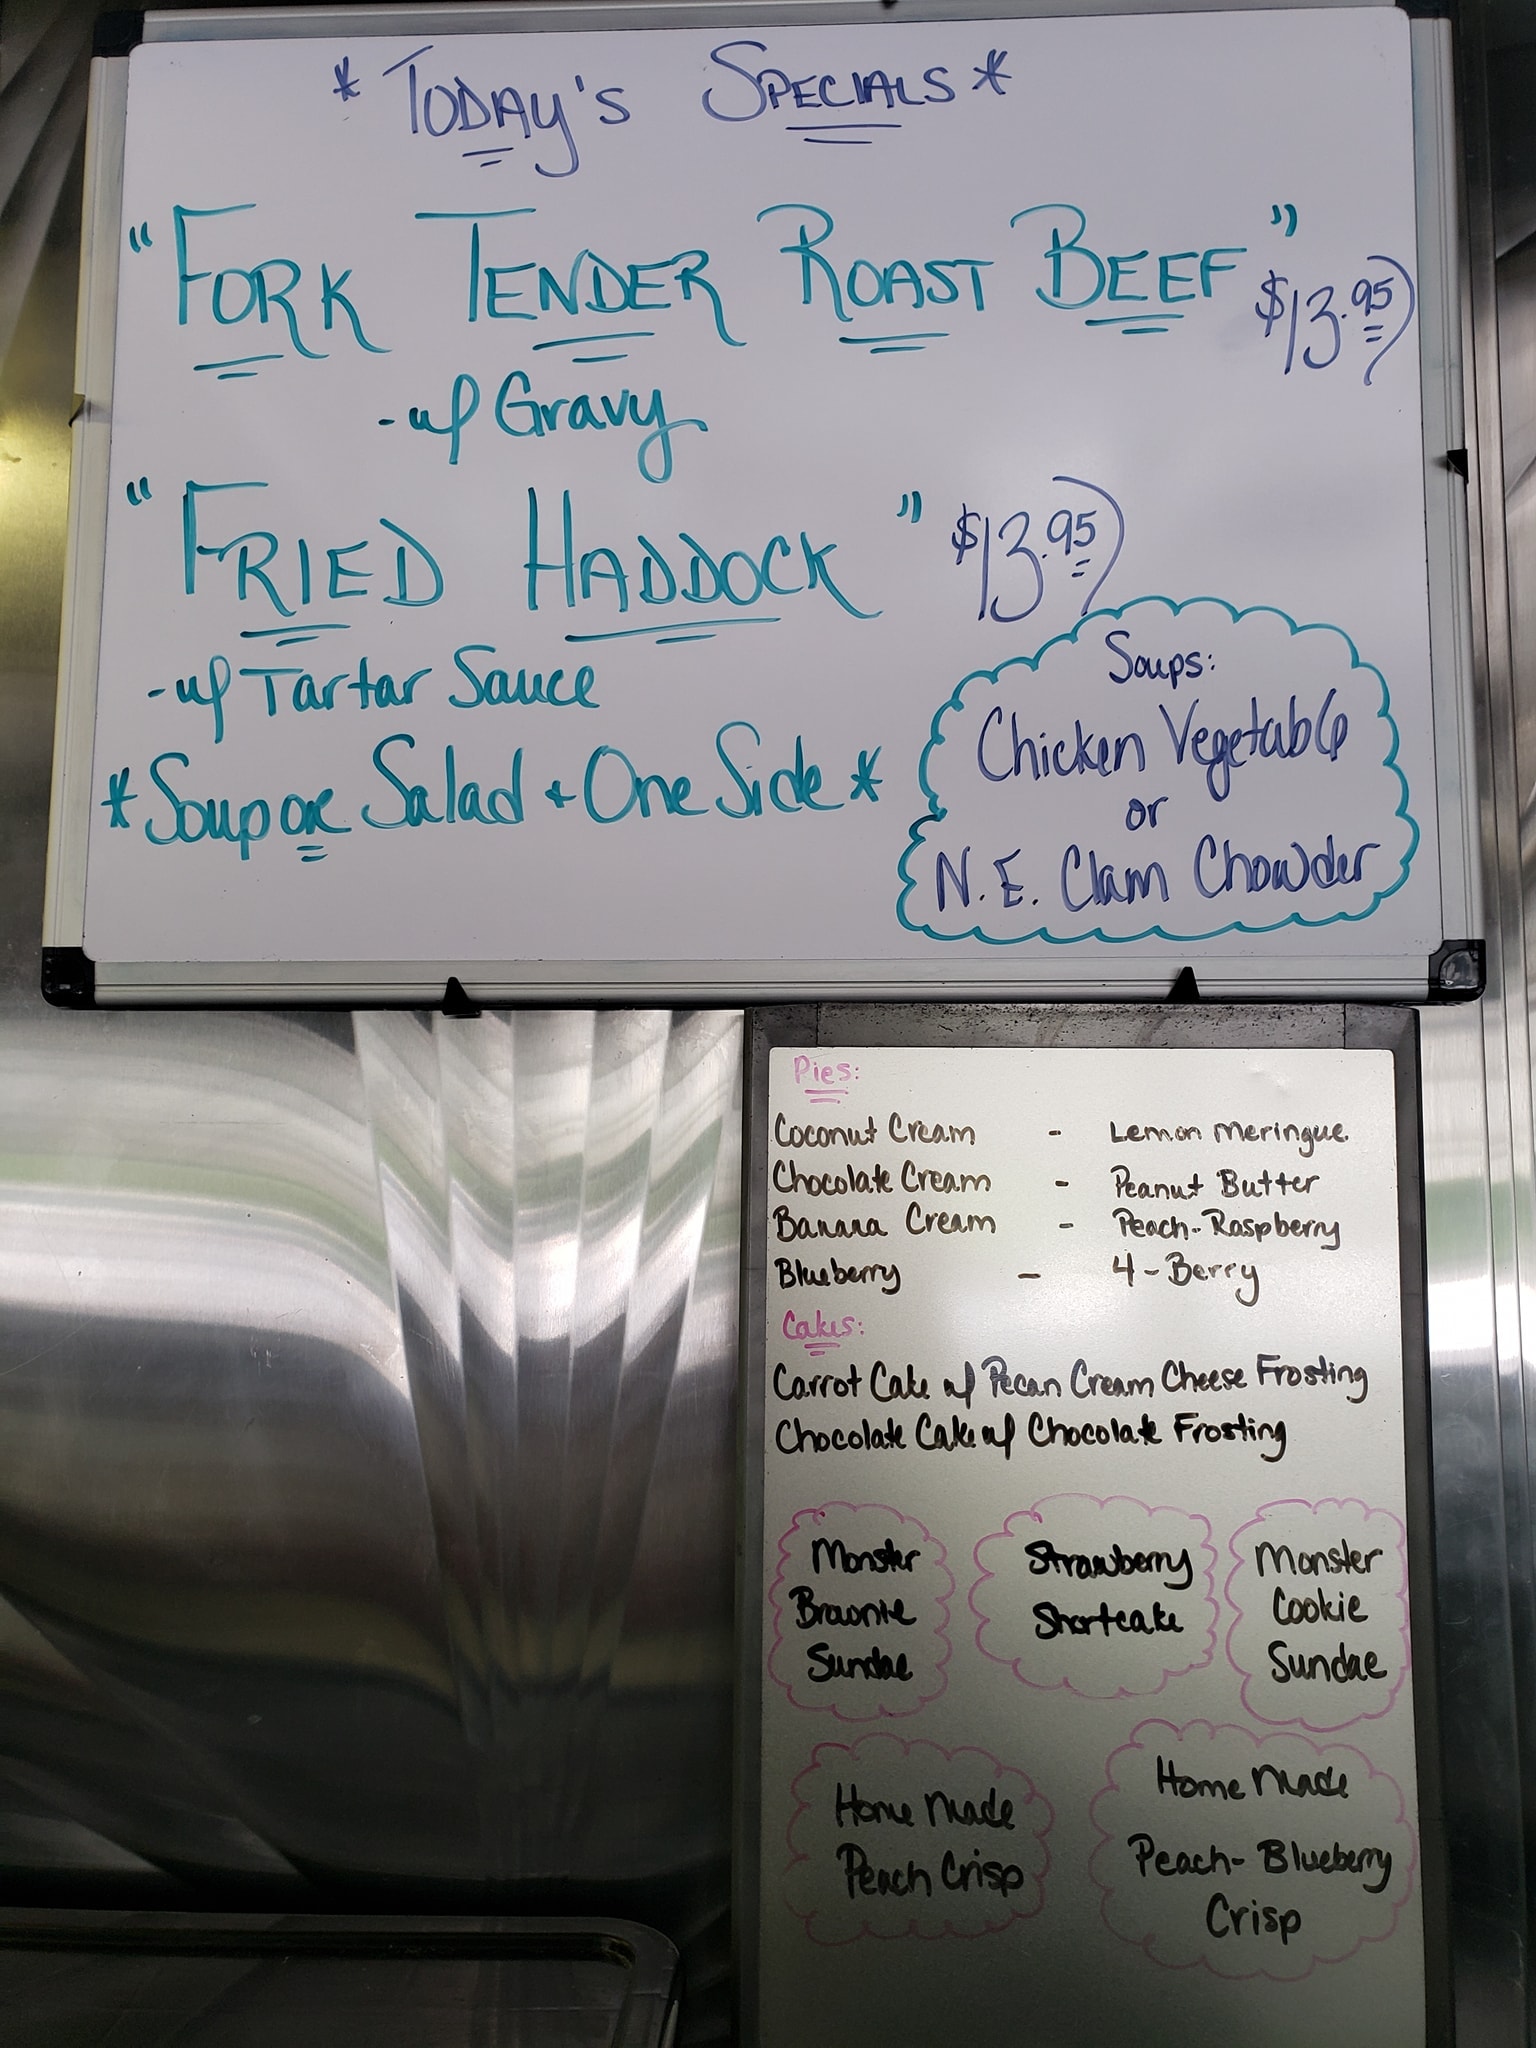 * TODAY'S SPECIALS *
"FORK TENDER ROAST BEEF" $13.95
- w/ Gravy
"FRIED HADDOCK" $13.95
- w/ Tartar Sauce
* Soup OR Salad + One Side *
Soups:
Chicken Vegetable
or
N.E. Clam Chowder
Pies:
Coconut Cream - Lemon Meringue
Chocolate Cream - Peanut Butter
Banana Cream - Peach-Raspberry
Blueberry - 4-Berry
Cakes:
Carrot Cake w/ Pecan Cream Cheese Frosting
Chocolate Cake w/ Chocolate Frosting
Monster
Brownie
Sundae
Strawberry
Shortcake
Monster
Cookie
Sundae
Home Made
Peach Crisp
Home Made
Peach-Blueberry
Crisp